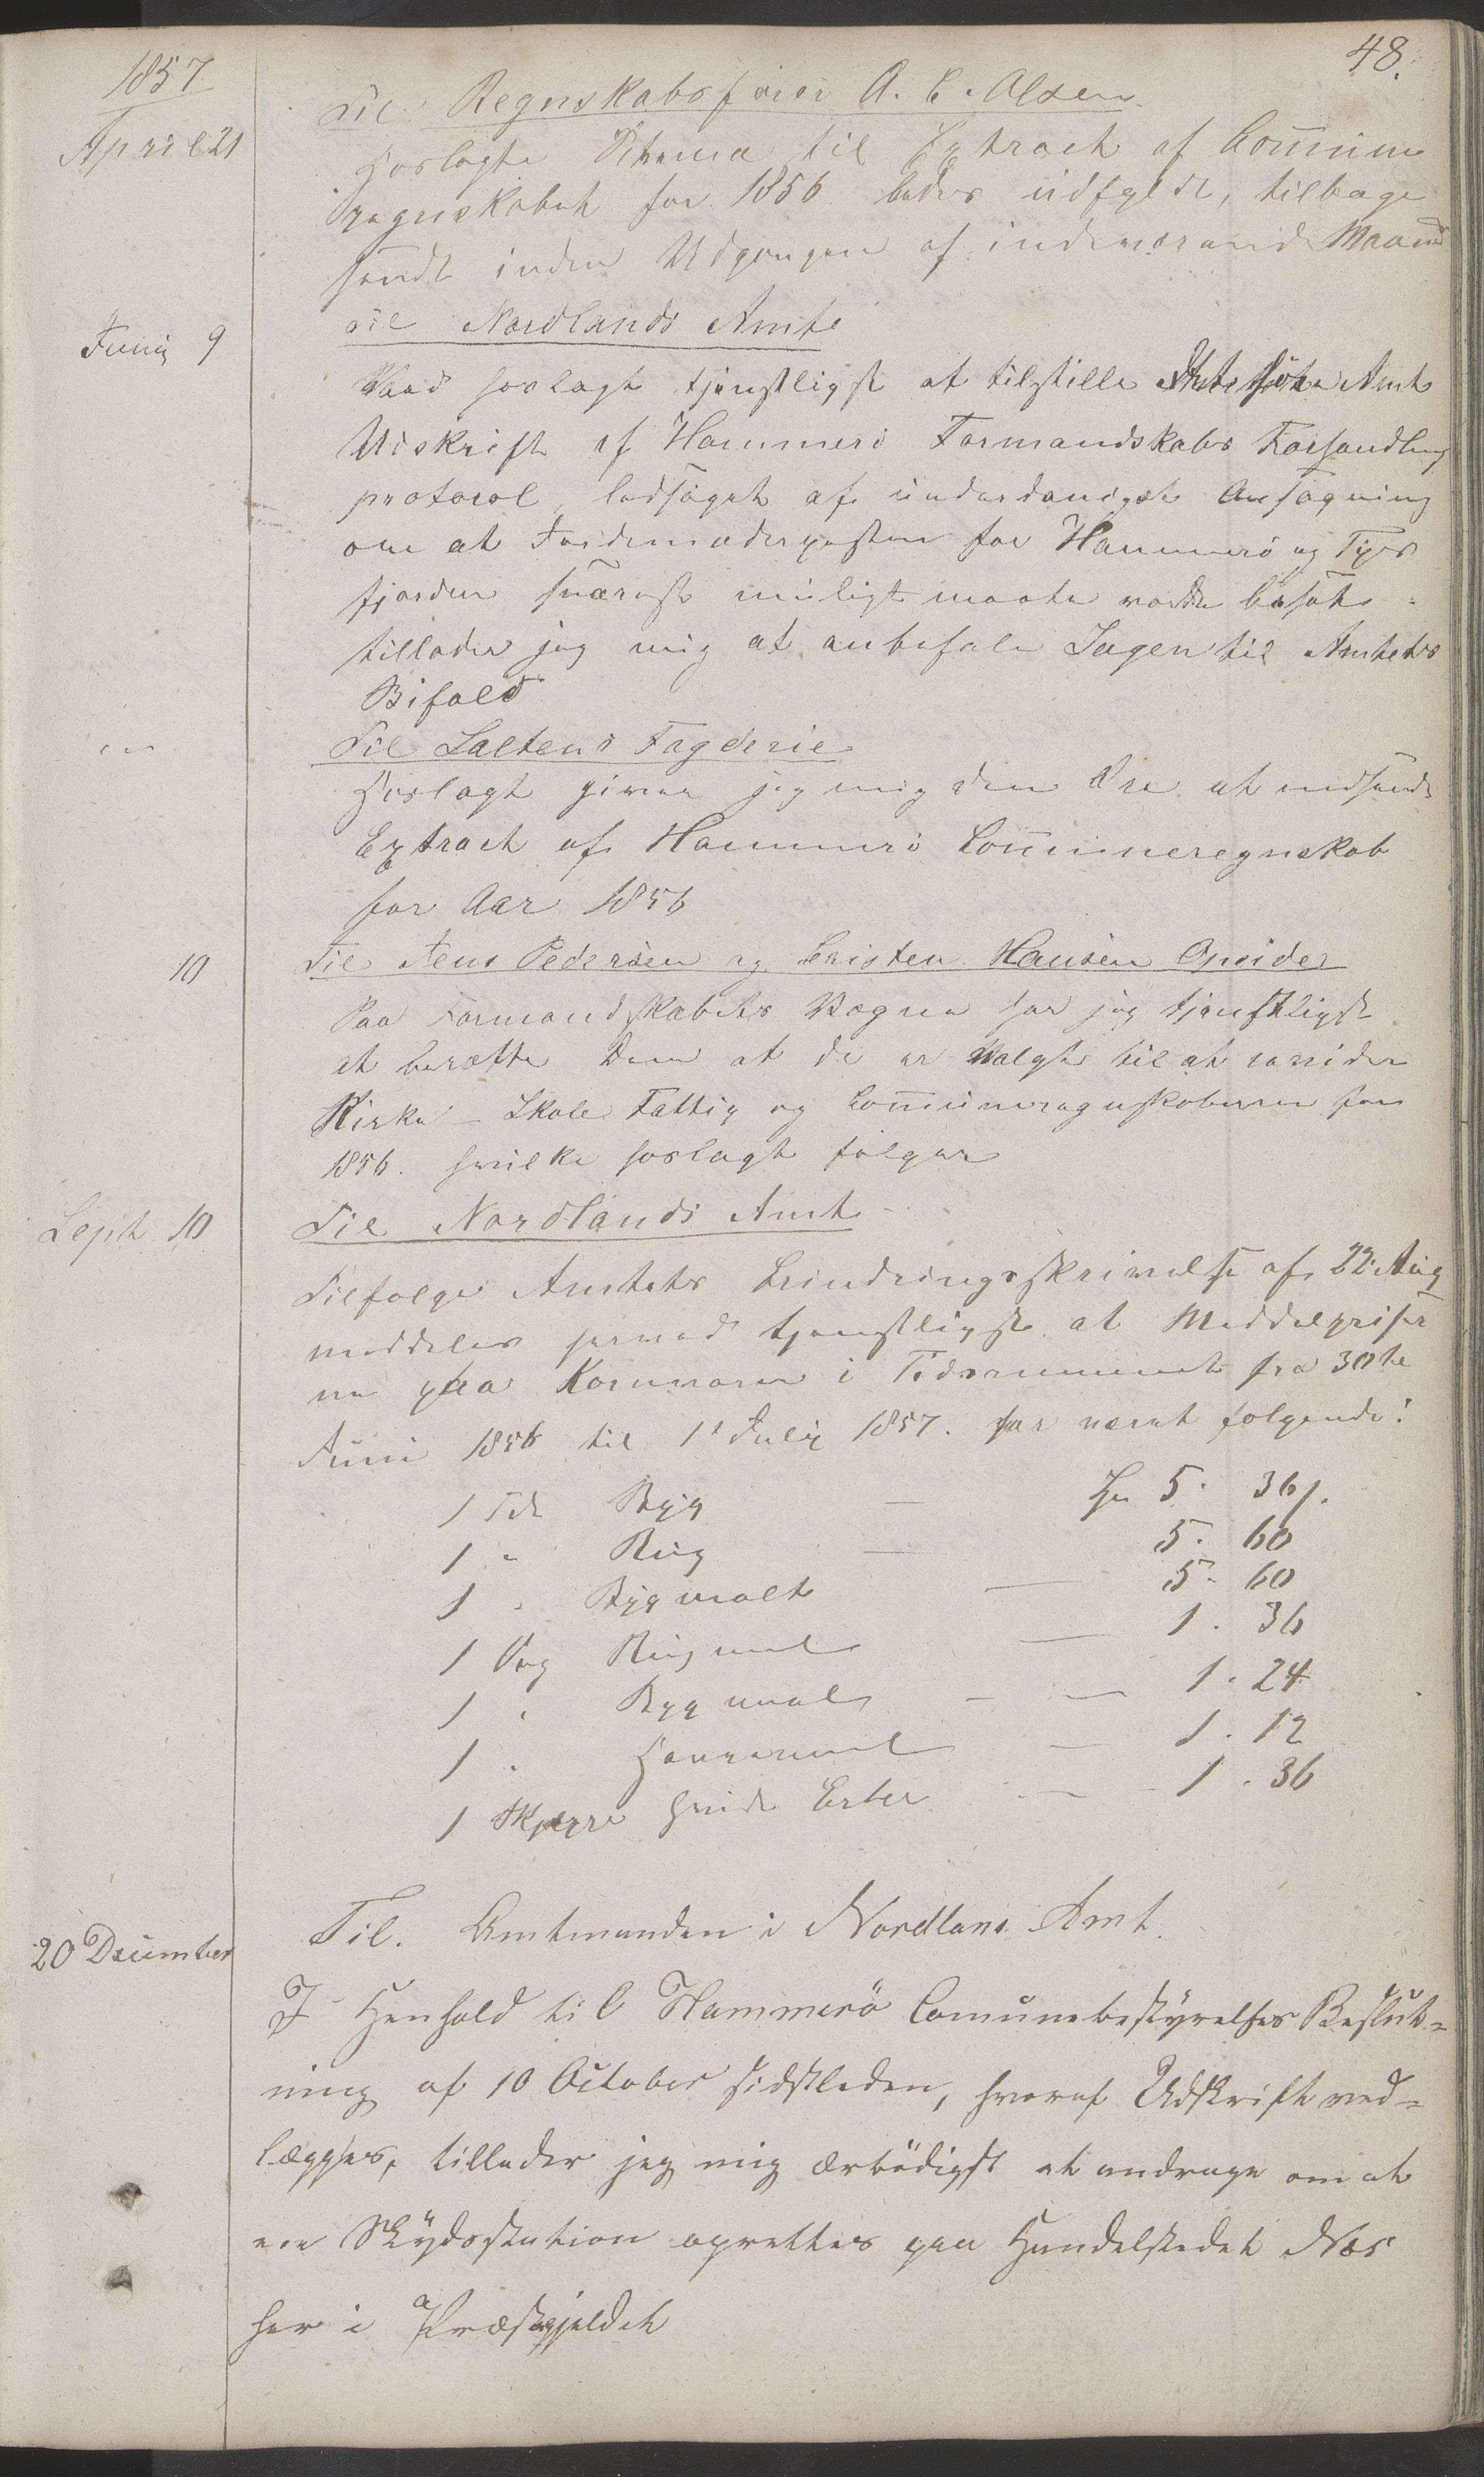 48.
1857
April 21
Til Regnskabsfører A. C. Olsen
Hoslagte Schema til Extract af Com̄une
regnskabet for 1856 bedes udfyldt, tilbage
sendt inden Udgangen af indeværende Maaned
Junij 9
Til Nordlands Amt
Ved hoslagt tjenstligst at tilstille Amt
Udskrift af Hammerö Formandskabs Forhandlings
protocol, ledsaget af underdanigst Ansøgning
om at Jordemoderposten for Hammerö og Tys
fjorden snarest muligt maatte vorde besat
tillader jeg mig at anbefale Sagen til Amtets
Bifald
" "
Til Saltens Fogderie
Hoslagt giver jeg mig den Ære at nedsende
Extract af Hammerö Com̄uneregnskab
for Aar 1856
10
Til Jens Pedersen og Cristen Hansen Opeider
Paa Formandskabets Vegne har jeg tjenstligst
at berette Dem at de er Valgte til at revidere
Kirke - Skole Fattig og Com̄uneregnskaberne for
1856. hvilke hoslagt følger
Sept 10
Til Nordlands Amt
Tilfølge Amtets Erindringsskrivelse af 22 Aug
meddeles herved tjenstligst at Middelpriser
ne paa Kornvarer i Tidsrummet fra 30te
Juni 1856 til 1ᵗ Julij 1857. har været følgende:
1 Tde Byg — 5. 36
1 " Rug — 5. 60
1 " Bygmalt — 5. 60
1 Vog Rugmel — 1. 36
1 " Bygmel — 1. 24
1 " Havremel — 1. 12
1 Skjeppe hvide Erter — 1. 36
20 December
Til. Amtmanden i Nordlans Amt.
I Henhold til Hammerö Comunebestyrelses Beslut-
ning af 10 October sidstleden, hvoraf Udskrift ved-
lægges, tillader jeg mig ærbödigst at andrage om at
en Skydsstation oprettes paa Handelstedet Næs
her i Præstegjeldet